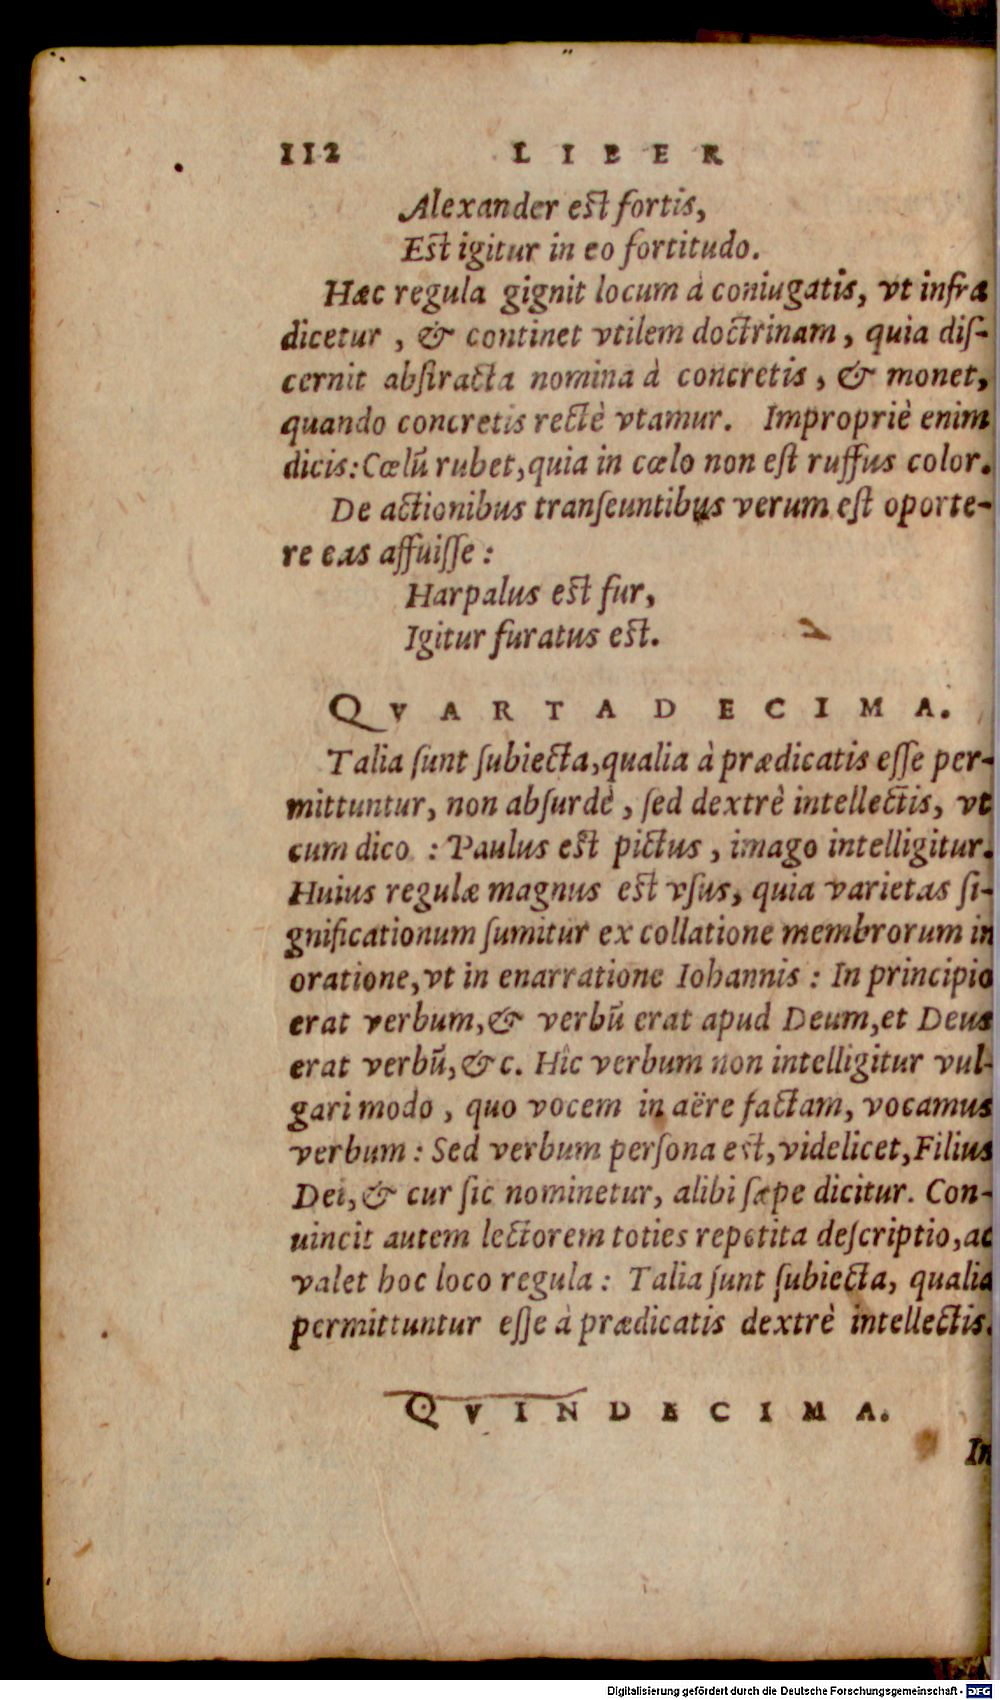 112 LIBER
Alexander eſt fortis,
Eſt igitur in eo fortitudo.
Hæc regula gignit locum à coniugatis, vt infra
dicetur, & continet vtilem doctrinam, quia diſ-
cernit abſtracta nomina à concretis, & monet,
quando concretis rectè vtamur. Impropriè enim
dicis: Cœlũ rubet, quia in cœlo non eſt ruffus color.
De actionibus tranſeuntibus verum eſt oporte-
re eas affuiſſe:
Harpalus eſt fur,
Igitur furatus eſt.
QVARTADECIMA.
Talia ſunt ſubiecta, qualia à prædicatis eſſe per-
mittuntur, non abſurdè, ſed dextrè intellectis, vt
cum dico: Paulus eſt pictus, imago intelligitur.
Huius regulæ magnus eſt vſus, quia varietas ſi-
gnificationum ſumitur ex collatione membrorum in
oratione, vt in enarratione Iohannis: In principio
erat verbum, & verbũ erat apud Deum, et Deus
erat verbũ, &c. Hîc verbum non intelligitur vul-
gari modo, quo vocem in aëre factam, vocamus
verbum: Sed verbum perſona eſt, videlicet, Filius
Dei, & cur ſic nominetur, alibi ſæpe dicitur. Con-
uincit autem lectorem toties repetita deſcriptio, ac
valet hoc loco regula: Talia ſunt ſubiecta, qualia
permittuntur eſſe à prædicatis dextrè intellectis.
QVINDECIMA.
In
Digitalisierung gefördert durch die Deutsche Forschungsgemeinschaft - DFG